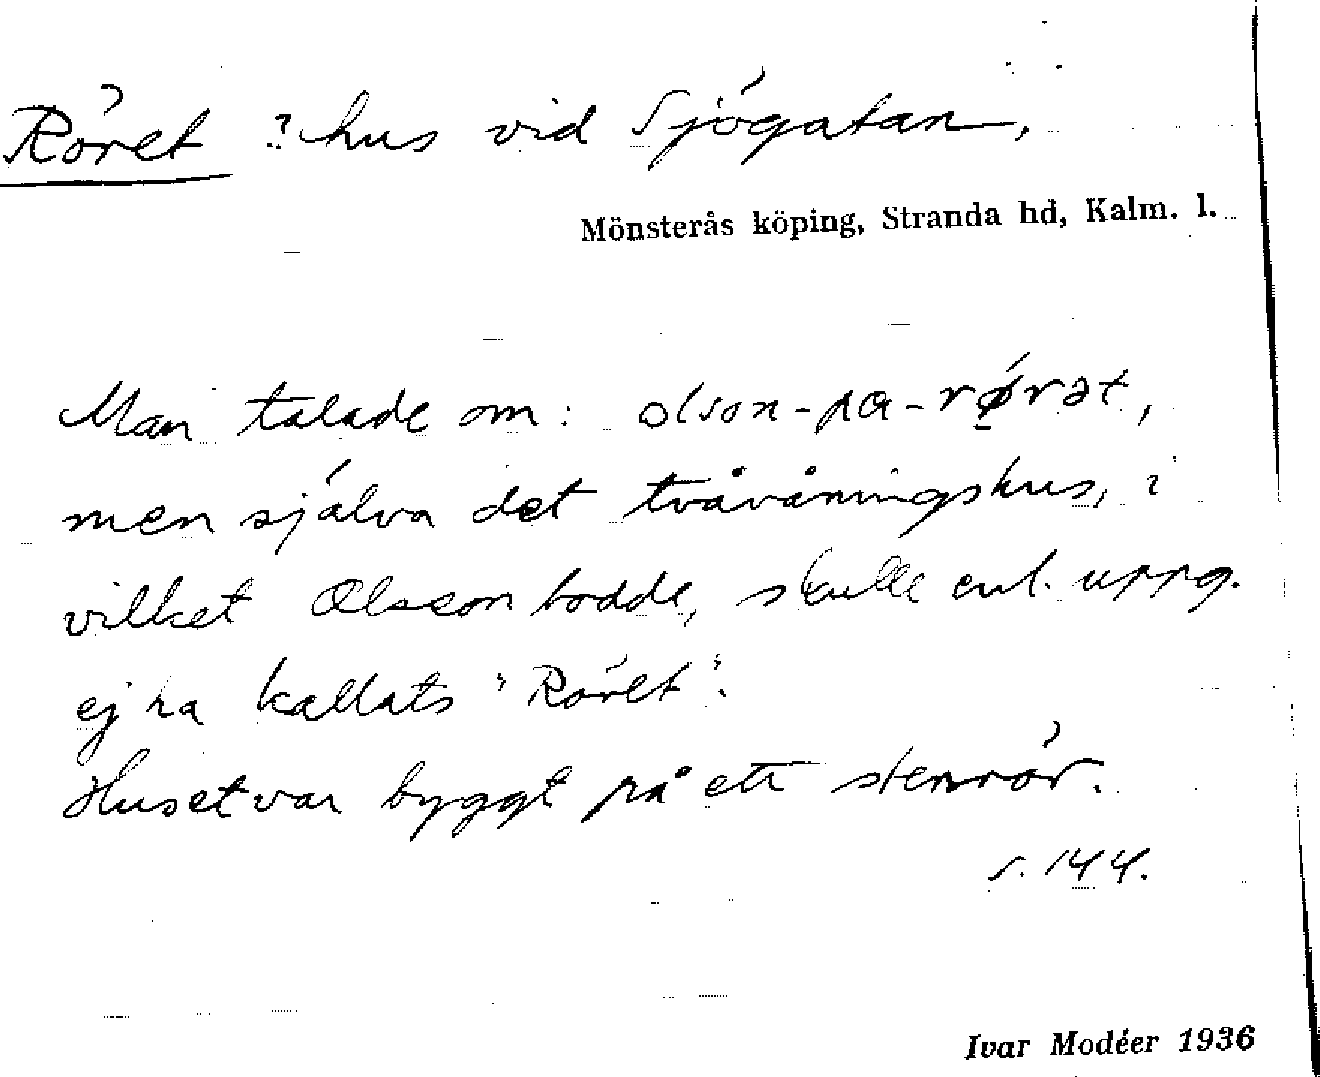 Röret ? hus vid Sjögatan,
Mönsterås köping, Stranda hd, Kalm. l.
Man talade om: olson-pa-rø̱rət,
men själva det tvåvåningshus, i
vilket Olsson bodde, skulle enl. uppg.
ej ha kallats "Röret".
Huset var byggt på ett stenrör.
s. 144.
Ivar Modéer 1936